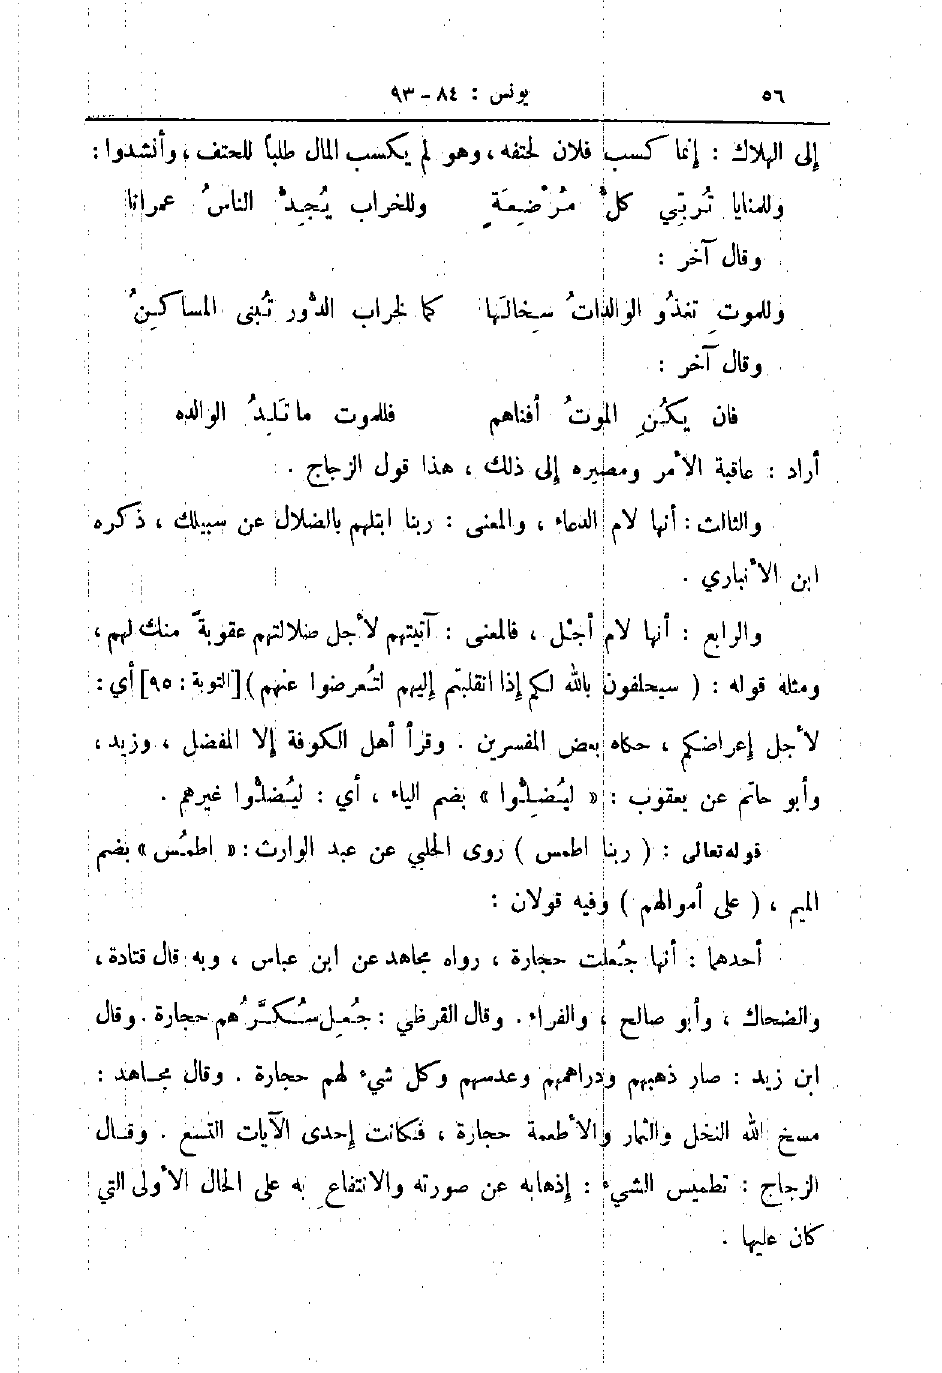 ٥٦ يونس : ٨٤ - ٩٣
إلى الهلاك : إنما كسب فلان لحتفه ، وهو لم يكسب المال طلباً للحتف ، وأنشدوا :
وللمنايا تُربّي كلُّ مُرْضِعَةٍ وللخراب يُجِدُّ الناسُ عمرانا
وقال آخر :
وللموتِ تغذُو الوالداتُ سِخالَها كما لخراب الدُّور تُبنى المساكنُ
وقال آخر :
فان يكُنِ الموتُ أفناهم فللموت ما تَلِدُ الوالده
أراد : عاقبة الأمر ومصيره إلى ذلك ، هذا قول الزجاج .
والثالث : أنها لام الدعاء ، والمعنى : ربنا ابتلهم بالضلال عن سبيلك ، ذكره
ابن الأنباري .
والرابع : أنها لام أجْل ، فالمعنى : آتيتهم لأجل ضلالتهم عقوبةً منك لهم ،
ومثله قوله : ( سيحلفون بالله لكم إذا انقلبتم إليهم لتُعرضوا عنهم ) [التوبة : ٩٥] أي :
لأجل إعراضكم ، حكاه بعض المفسرين . وقرأ أهل الكوفة إلا المفضل ، وزيد ،
وأبو حاتم عن يعقوب : « ليُضِلُّوا » بضم الياء ، أي : ليُضلُّوا غيرهم .
قوله تعالى : ( ربنا اطمس ) روى الحلبي عن عبد الوارث : « اطمُس » بضم
الميم ، ( على أموالهم ) وفيه قولان :
أحدهما : أنها جُعلت حجارة ، رواه مجاهد عن ابن عباس ، وبه قال قتادة ،
والضحاك ، وأبو صالح ، والفراء . وقال القرظي : جُعِل سُكَّرُهم حجارة . وقال
ابن زيد : صار ذهبهم ودراهمهم وعدسهم وكل شيء لهم حجارة . وقال مجاهد :
مسخ الله النخل والثمار والأطعمة حجارة ، فكانت إحدى الآيات التسع . وقال
الزجاج : تطميس الشيء : إذهابه عن صورته والانتفاعِ به على الحال الأولى التي
كان عليها .